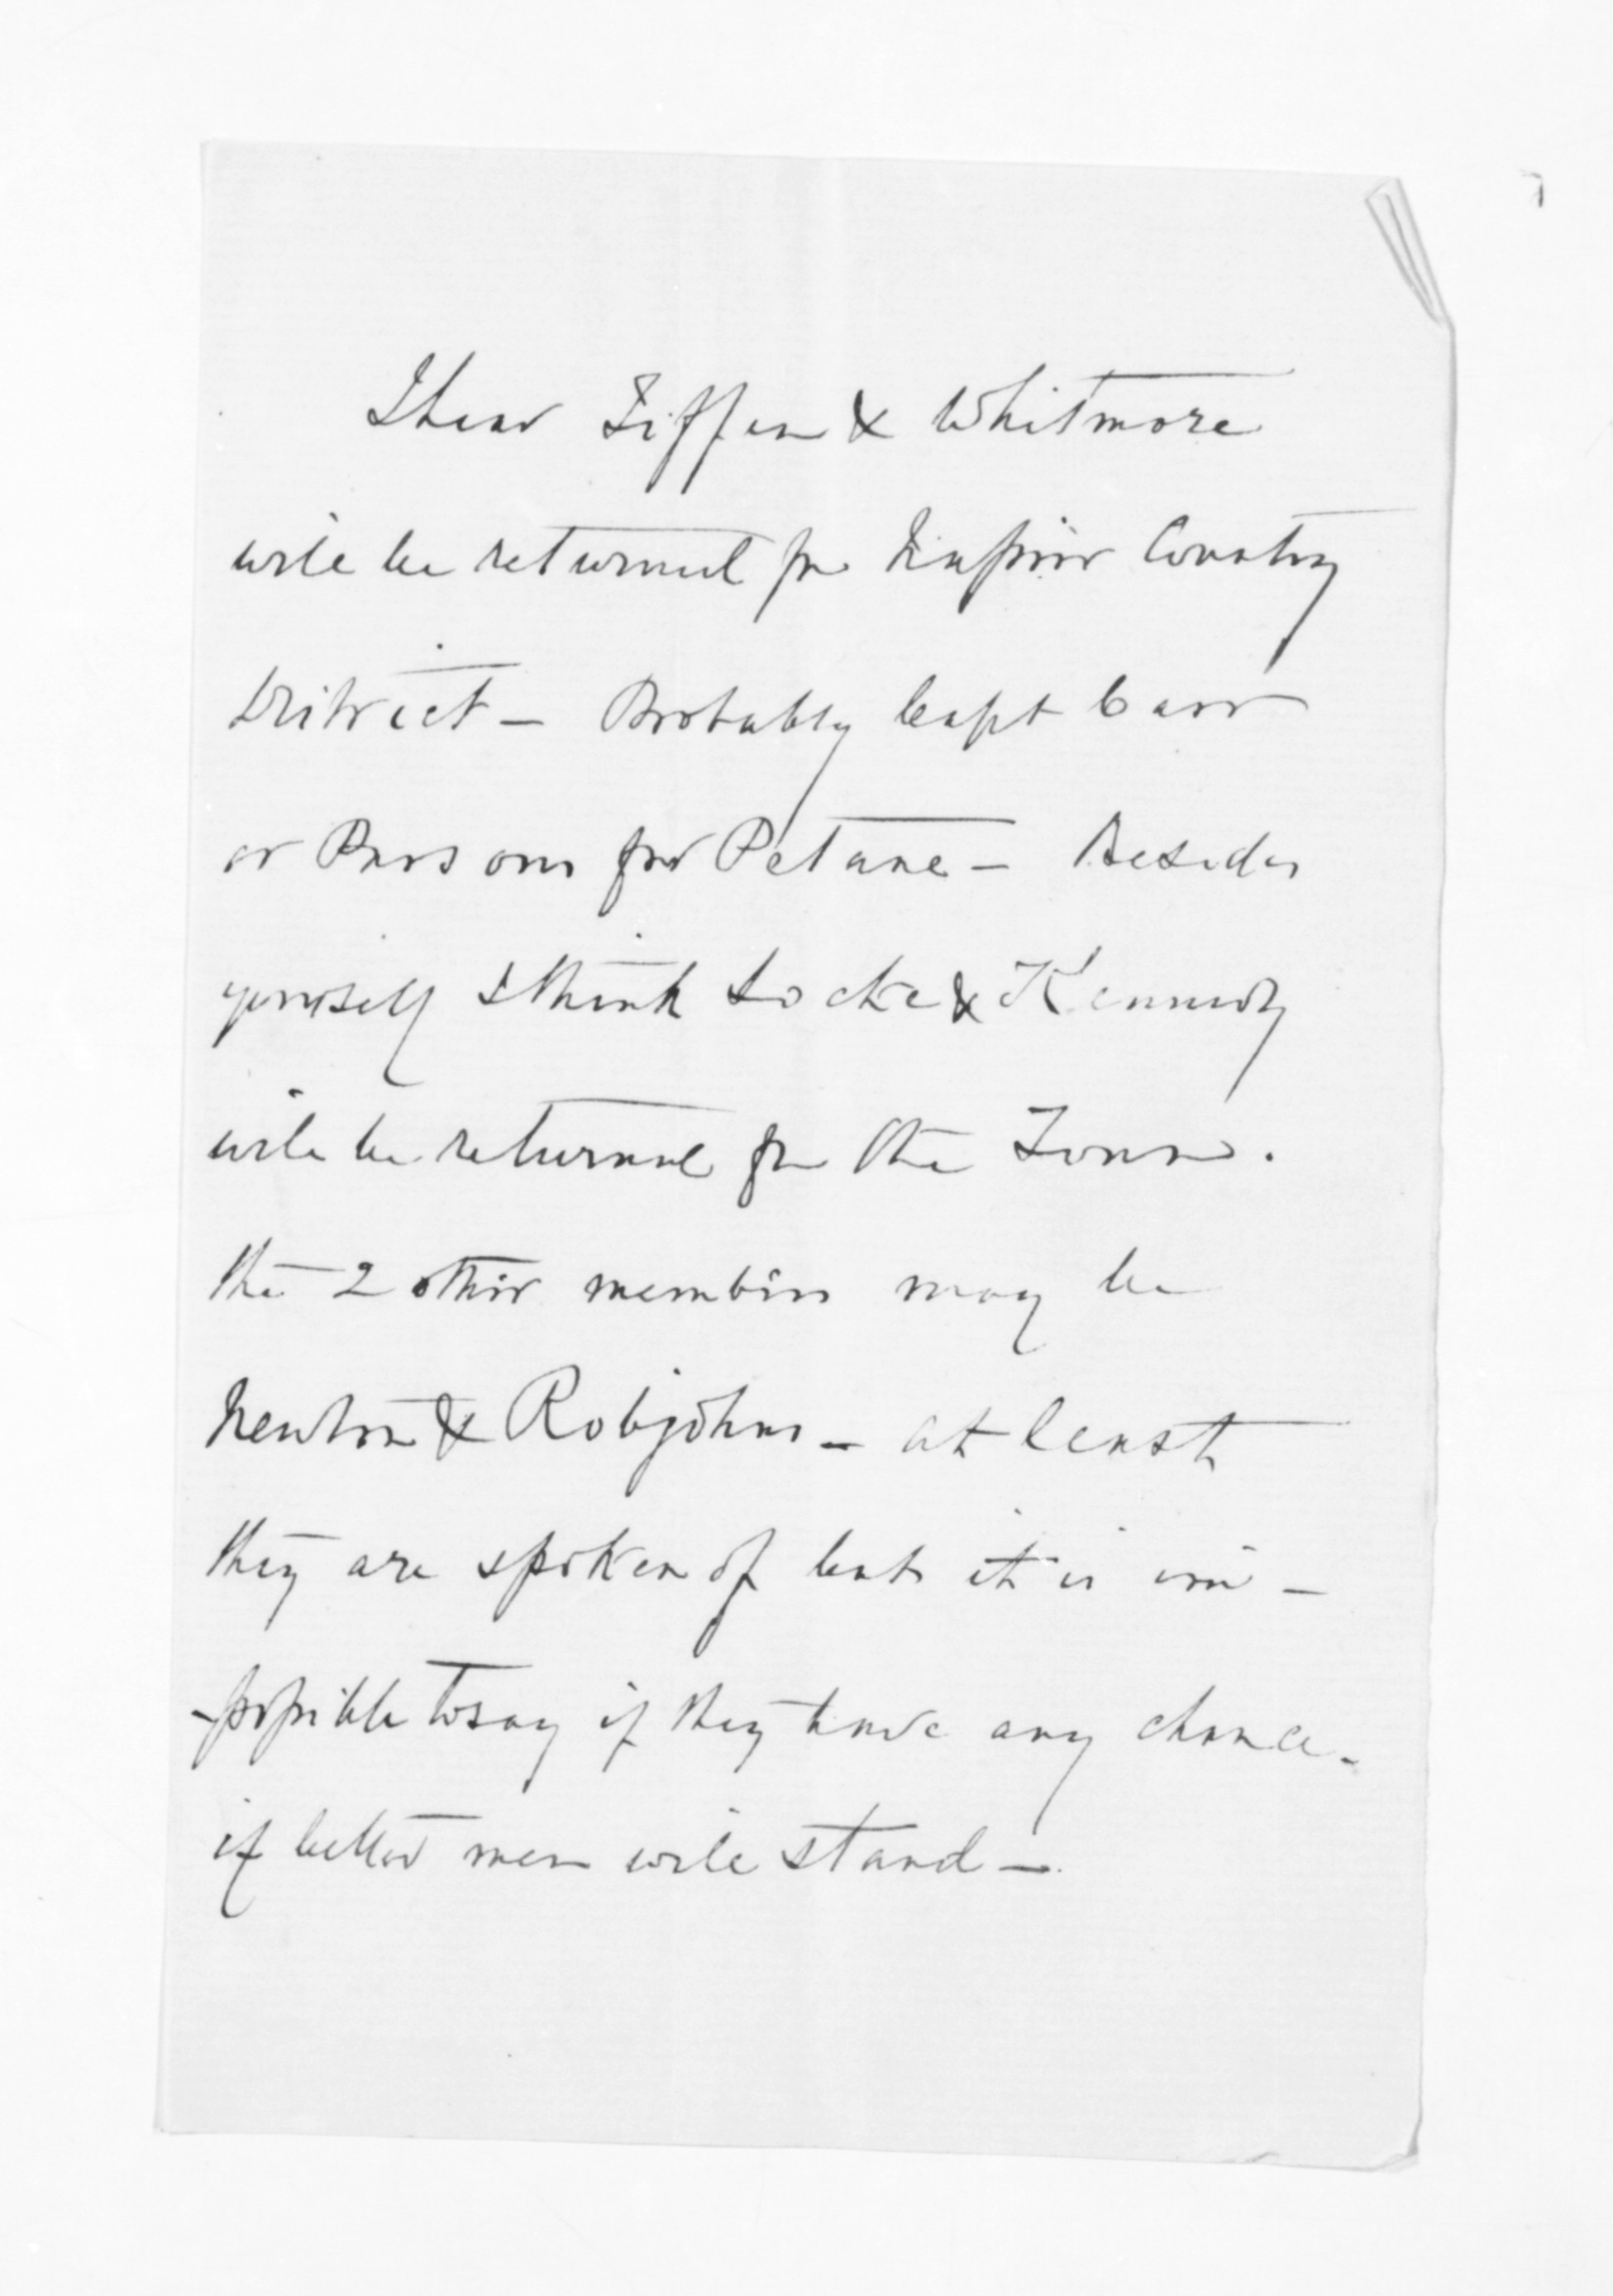 I hear Tiffen & Whitmore
will be returned for Napier Country
District — Probably Capt Carr
or Parsons for Petane — Besides
yourself I think Locke & Kennedy
will be returned for the Town.
the 2 other members may be
Newton & Robjohns — at least
they are spoken of but it is im-
-possible to say if they have any chance.
if better men will stand —